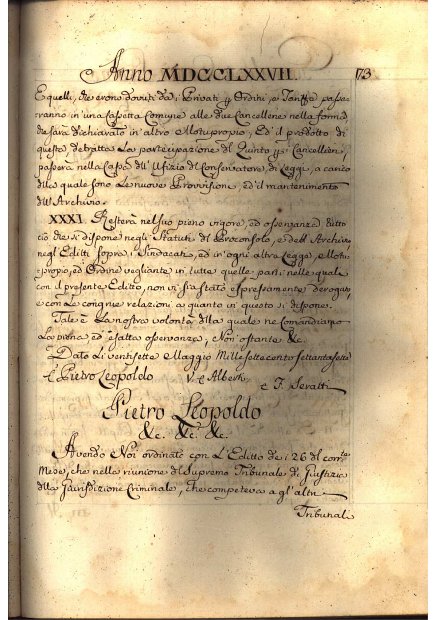 Anno MDCCLXXVII. 173
E quelli, che erono dovuti da i Privati p Ordini, o Tariffa passe-
ranno in una Cassetta Comune alle due Cancellerie nella forma,
che sarà dichiarato in altro Motuproprio; Ed il prodotto di
queste detratta la partecipazione del Quinto p i Cancellieri,
passerà nella Cassa dell' Ufizio di Conservatore di Leggi, a carico
del quale sono le nuove Provvisioni, ed il mantenimento
dell' Archivio.
XXXI. Resterà nel suo pieno vigore, ed osservanza tutto
ciò che si dispone negli Statuti del Proconsolo, e dell' Archivio,
negl' Editti sopra i Sindacati, ed in ogni altra Legge, e Motu-
propio, ed Ordine vegliante in tutte quelle parti nelle quali
con il presente Editto, non vi sia stato espressamente derogato,
e con le congrue relazioni a quanto in questo si dispone.
Tale è la nostra volontà della quale ne Comandiamo
la piena ed esatta osservanza, Non ostante &c.
Dato li Ventisette Maggio Mille Settecento settantasette
Pietro Leopoldo V. Alberti
F. Seratti
Pietro Leopoldo
&c. &c. &c.
Avendo Noi ordinato con l'Editto de i 26 del corr.e
Mese, che nella riunione del Supremo Tribunale di Giustizia
della Giurisdizione Criminale, che competeva a gl'altri
Tribunali